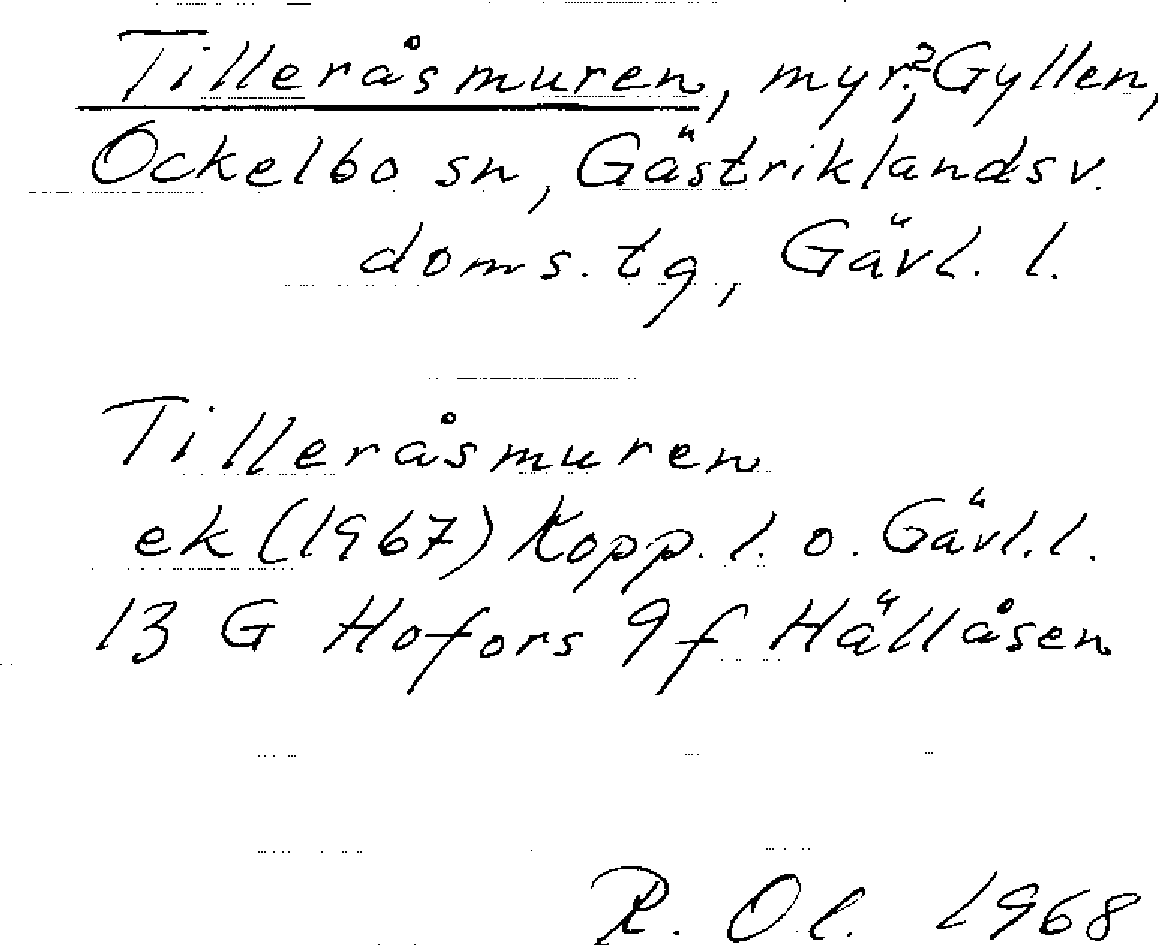 Tilleråsmuren, myr?, Gyllen,
Ockelbo sn, Gästriklands v.
doms. tg, Gävl. l.
Tilleråsmuren
ek (1967) Kopp. l. o. Gävl. l.
13 G Hofors 9f Hällåsen
R. Ol. 1968